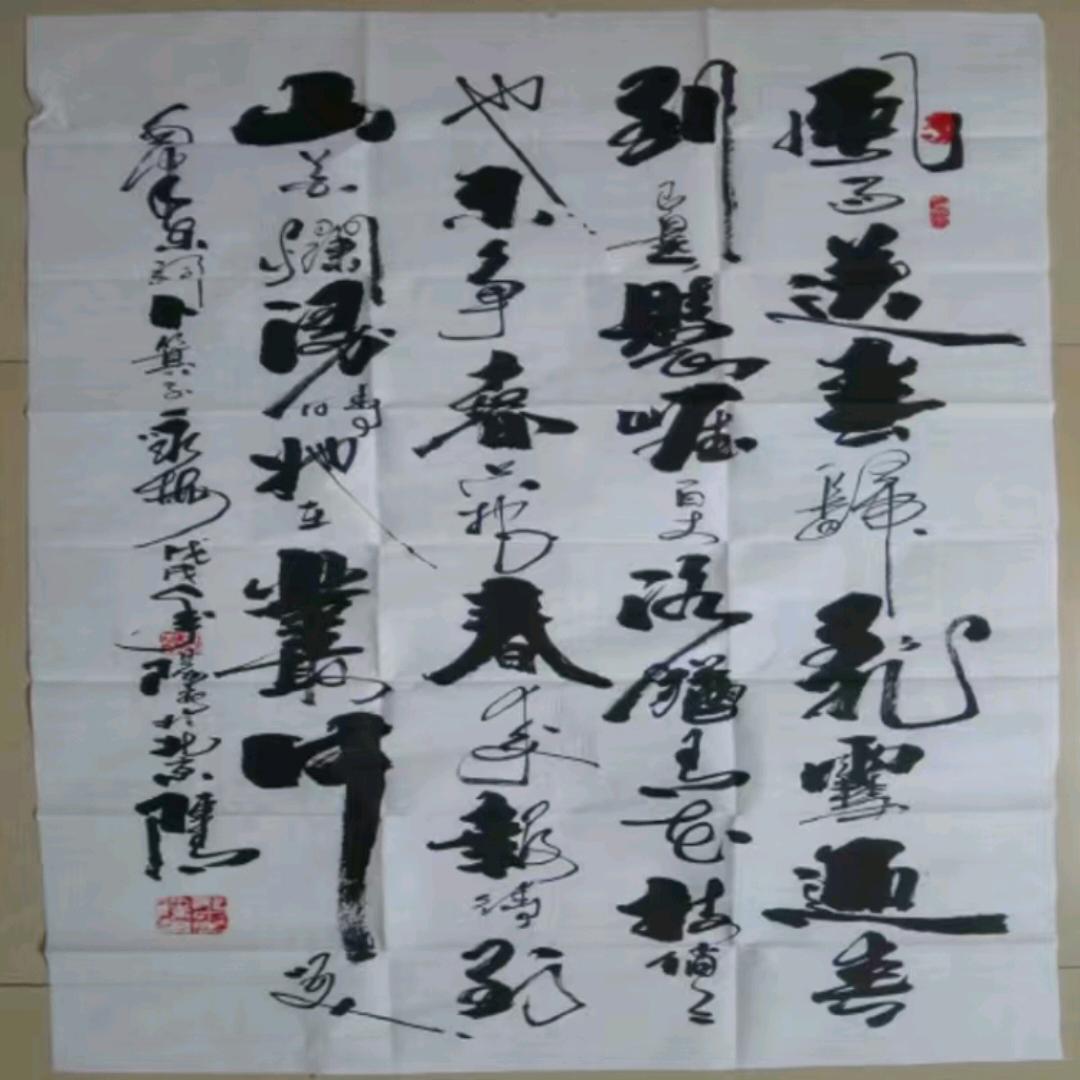 風雨送春歸飛雪迎春
到已是懸崖百丈冰猶有花枝俏〻
也不争春只把春來報待到
山花爛漫時她在叢中笑
毛澤東詞卜算子詠梅戊戌年於北京